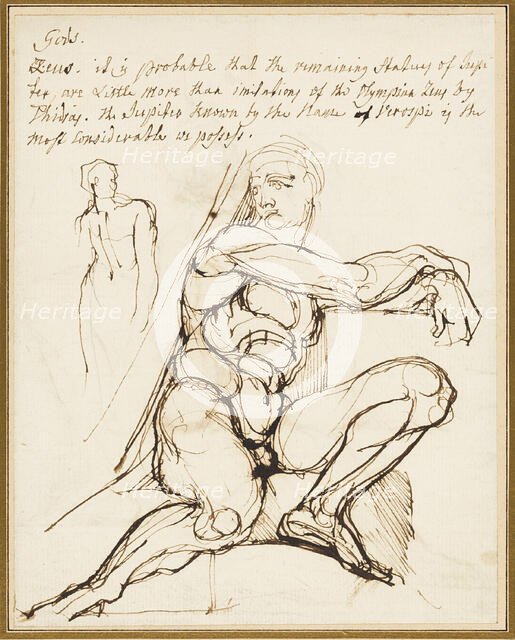 Gods.
Zeus. it is probable that the remaining Statues of Jupi-
ter, are Little more than imitations of the Olympian Zeus by
Phidias. the Jupiter known by the Name of Verospi is the
most Considerable we possess.
Heritage
Heritage
Heritage
Heritage
Heritage
Heritage
Heritage
Heritage